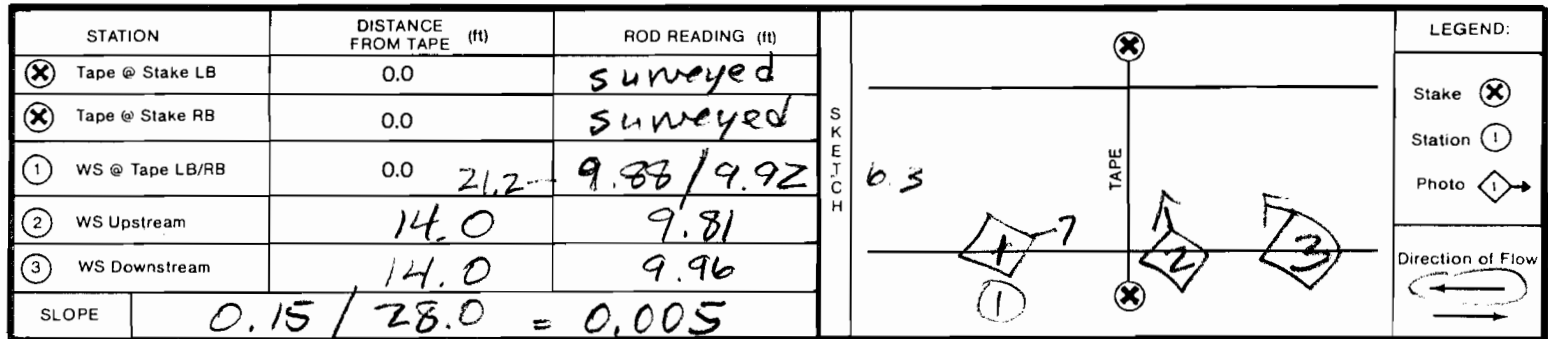 STATION DISTANCE FROM TAPE (ft) ROD READING (ft)
Tape @ Stake LB 0.0 surveyed
Tape @ Stake RB 0.0 surveyed
1 WS @ Tape LB/RB 0.0 21.2 9.88 / 9.92
2 WS Upstream 14.0 9.81
3 WS Downstream 14.0 9.96
SLOPE 0.15 / 28.0 = 0.005
SKETCH
6.3
TAPE
1
2
3
1
LEGEND:
Stake
Station 1
Photo 1
Direction of Flow